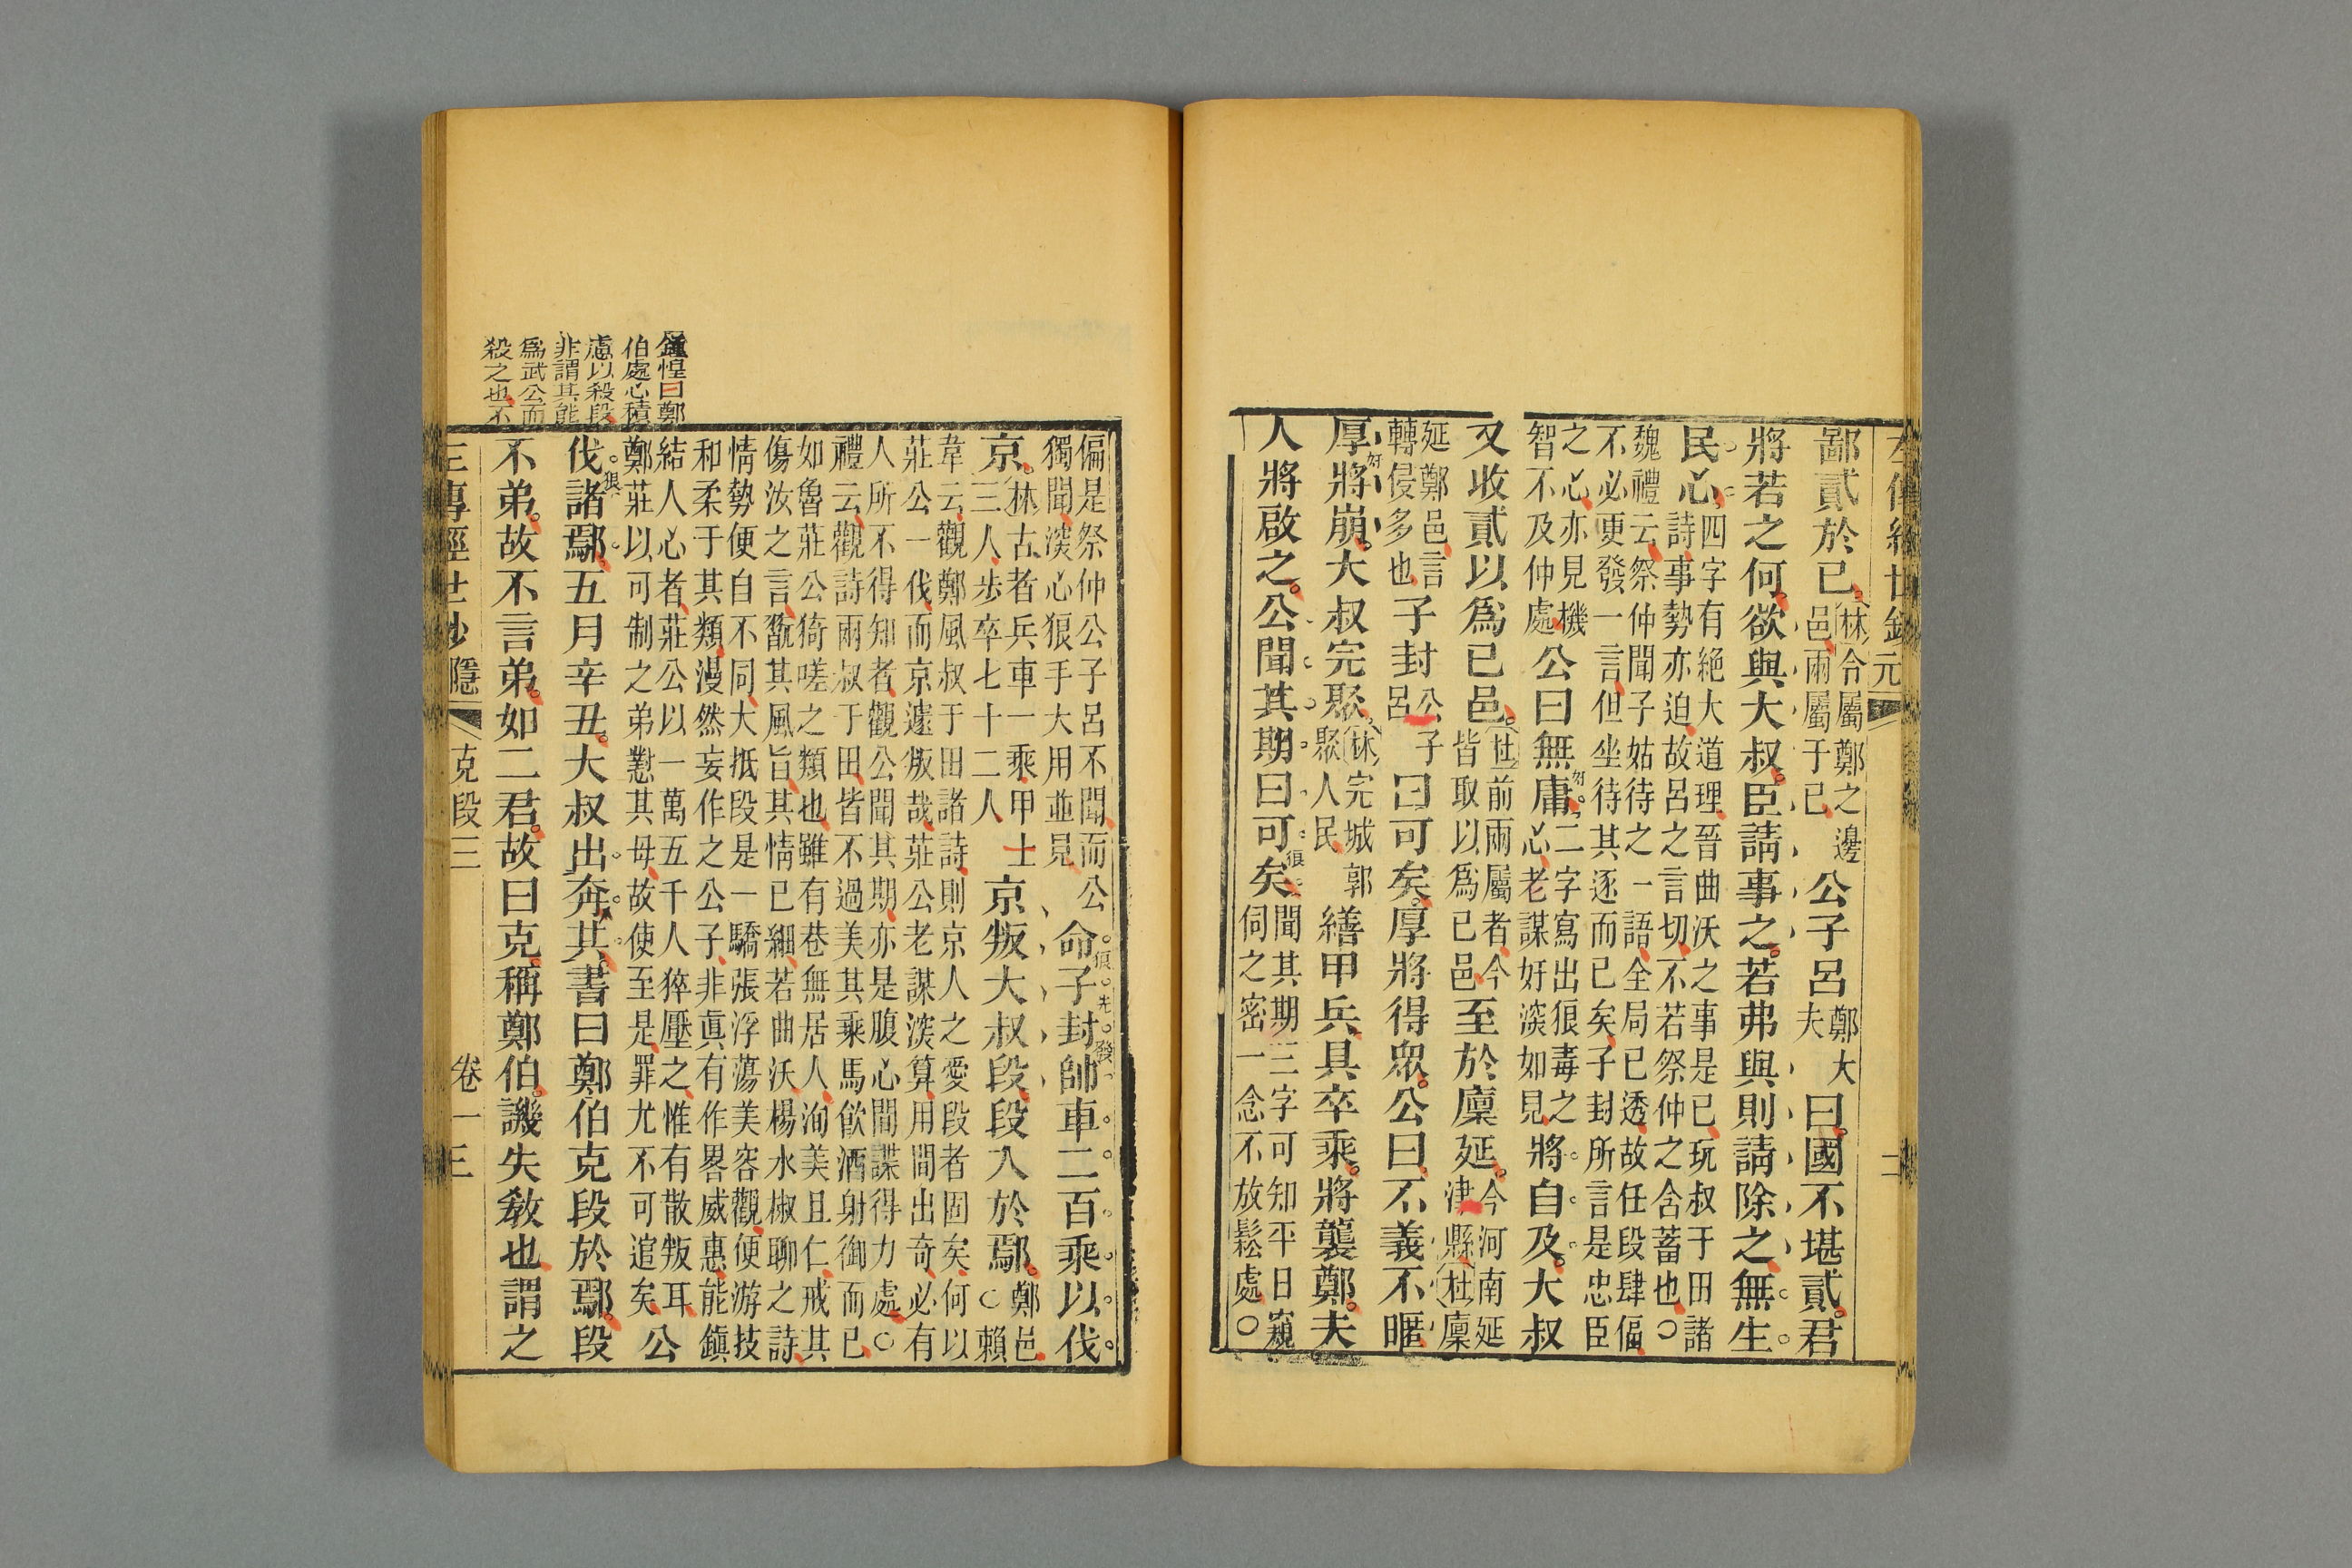 左傳經世鈔 元 二
鄙貳於已林合屬鄭之邊邑兩屬于已公子呂鄭大夫曰國不堪貳君
將若之何欲與大叔臣請事之若弗與則請除之無生
民心四字有絶大道理晉曲沃之事是已玩叔于田諸詩事勢亦迫故呂之言切不若祭仲之含蓄也○
魏禮云祭仲聞子姑待之一語全局已透故任段肆偪不必更發一言但坐待其逐而已矣子封所言是忠臣
之心亦見機智不及仲處公曰無庸二字寫出狠毒之心老謀奸深如見將自及大叔
又收貳以爲已邑杜前兩屬者今皆取以爲已邑至於廩延今河南延津縣杜廩
延鄭邑言轉侵多也子封公子呂曰可矣厚將得眾公曰不義不暱
厚將崩大叔完聚林完城郭聚人民繕甲兵具卒乘將襲鄭夫
人將啟之公聞其期曰可矣聞其期三字可知平日窺伺之密一念不放鬆處○
偏是祭仲公子呂不聞而公獨聞深心狠手大用並見命子封帥車二百乘以伐
京林古者兵車一乘甲士三人步卒七十二人京叛大叔段段入於鄢鄭邑○賴
韋云觀鄭風叔于田諸詩則京人之愛段者固矣何以莊公一伐而京遽叛哉莊公老謀深算用間出奇必有
人所不得知者觀公聞其期亦是腹心間諜得力處○禮云觀詩兩叔于田皆不過美其乘馬飲酒射御而已
如魯莊公猗嗟之類也雖有巷無居人洵美且仁戒其傷汝之言翫其風旨其情已細若曲沃楊水椒聊之詩
情勢便自不同大抵段是一驕張浮蕩美容觀便游技和柔于其類漫然妄作之公子非眞有作畧威惠能鎭
結人心者莊公以一萬五千人猝壓之惟有散叛耳鄭莊以可制之弟懟其母故使至是罪尤不可逭矣公
伐諸鄢五月辛丑大叔出奔共書曰鄭伯克段於鄢段
不弟故不言弟如二君故曰克稱鄭伯譏失敎也謂之
鍾惺曰鄭
伯處心積
慮以殺段
非謂其能
爲武公而
殺之也不
左傳經世鈔 隱 克段三 卷一 三